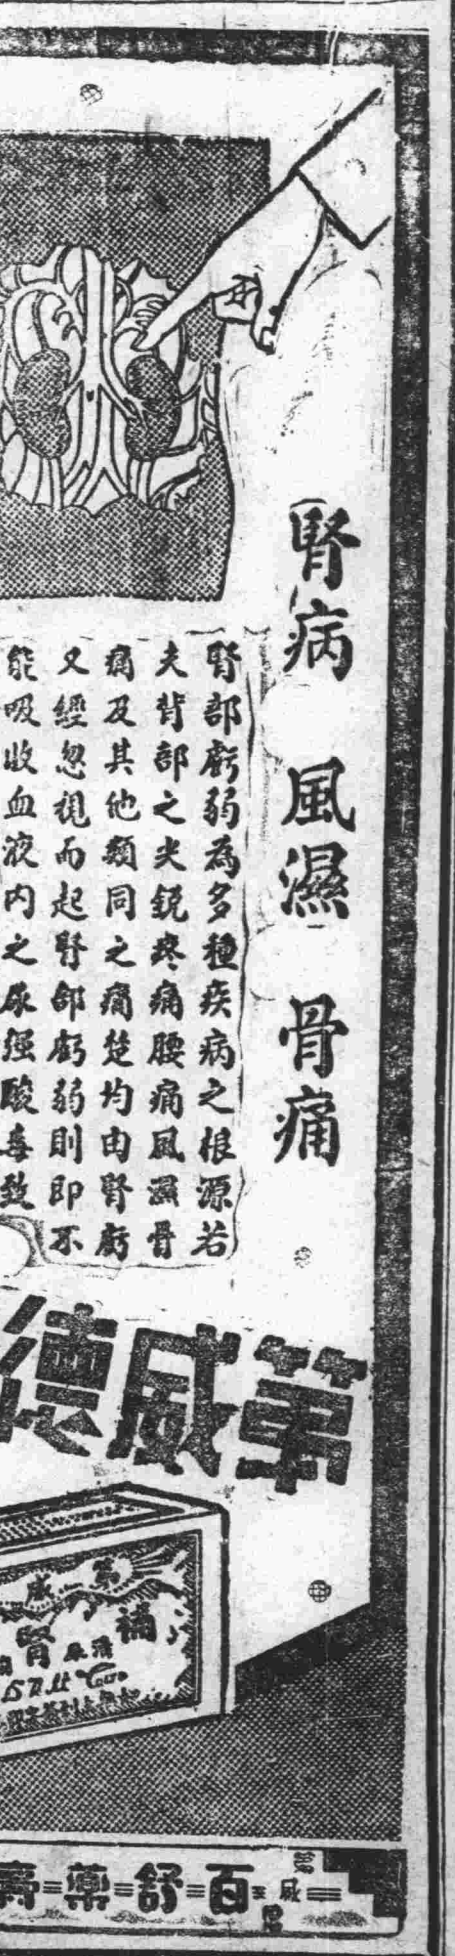 腎病 風濕 骨痛
腎部虧弱為多種疾病之根源若
夫背部之尖銳疼痛腰痛風濕骨
痛及其他類同之痛楚均由腎虧
又經忽視而起腎部虧弱則即不
能吸收血液内之尿强酸毒致
第威德
第威
補腎
百舒藥膏